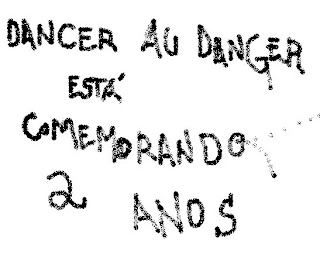 DANCER AU DANGER
ESTÁ
COMEMORANDO
2
ANOS